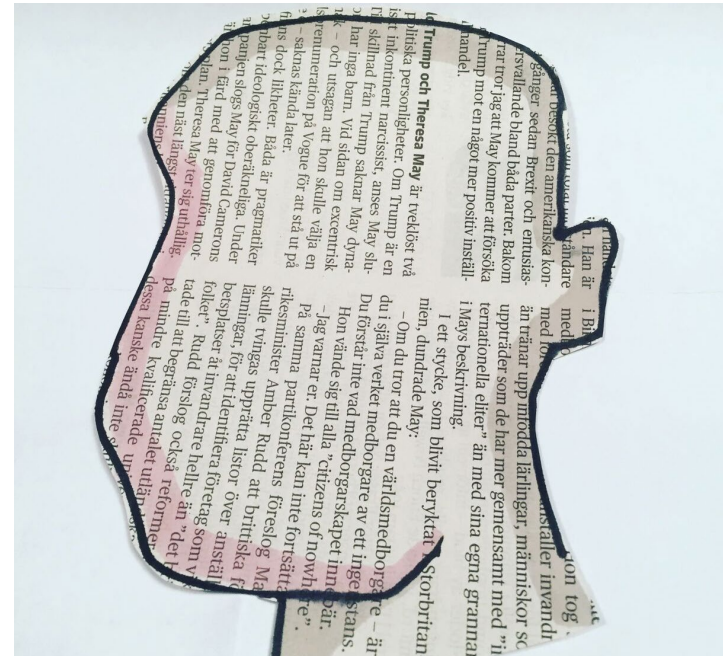 Han är
besökt den amerikanska kon-
gånger sedan Brexit och entusias-
bland båda parter. Bakom
tror jag att May kommer att försöka
Trump mot en något mer positiv inställ-
handel.
Trump och Theresa May är tveklöst två
politiska personligheter. Om Trump är en
inkontinent narcissist, anses May slu-
skillnad från Trump saknar May dyna-
har inga barn. Vid sidan om excentrisk
– och utsagan att hon skulle välja en
prenumeration på Vogue för att stå ut på
– saknas kända later.
dock likheter. Båda är pragmatiker
ideologiskt oberäkneliga. Under
slogs May för David Camerons
hon i färd med att genomföra mot-
plan. Theresa May ter sig uthållig.
den näst längst
tog
invandr
än tränar upp lärlingar, människor so
uppträder som de har mer gemensamt med "in
ternationella eliter" än med sina egna grannar
i Mays beskrivning.
I ett stycke, som blivit beryktat i Storbritan
nien, dundrade May:
– Om du tror att du en världsmedborgare – är
du i själva verket medborgare av ett ingenstans.
Du förstår inte vad medborgarskapet innebär.
Hon vände sig till alla "citizens of nowhere".
– Jag varnar er. Det här kan inte fortsätta
På samma partikonferens föreslog Ma
rikesminister Amber Rudd att brittiska fö
skulle tvingas upprätta listor över anställ
länningar, för att identifiera företag som
betsplatser åt invandrare hellre än "det
folket". Rudd förslog också reformer
tade till att begränsa antalet utlän
på mindre kvalificerade
dessa kanske ändå inte